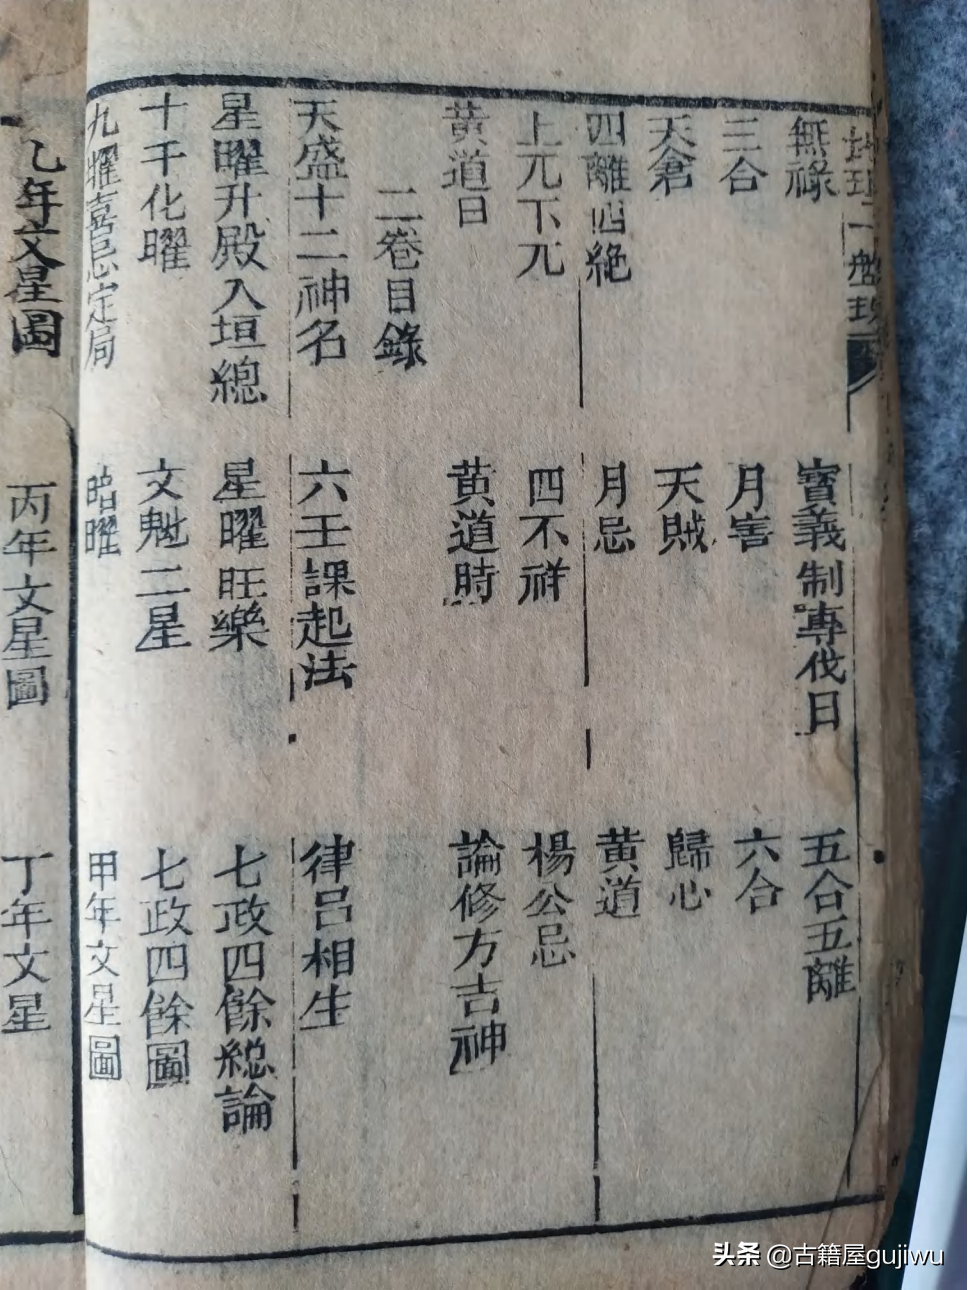 無祿 寳義制專伐日 五合五離
三合 月害 六合
天倉 天賊 歸心
四離四絶 月忌 黄道
上兀下兀 四不祥 楊公忌
黄道日 黄道時 論修方吉神
二卷目錄
天盛十二神名 六壬課起法 律呂相生
星曜升殿入垣總 星曜旺樂 七政四餘総論
十干化曜 文魁二星 七政四餘圖
九曜喜忌定局 暗曜 甲年文星圖
乙年文星圖 丙年文星圖 丁年文星
头条 @古籍屋gujiwu